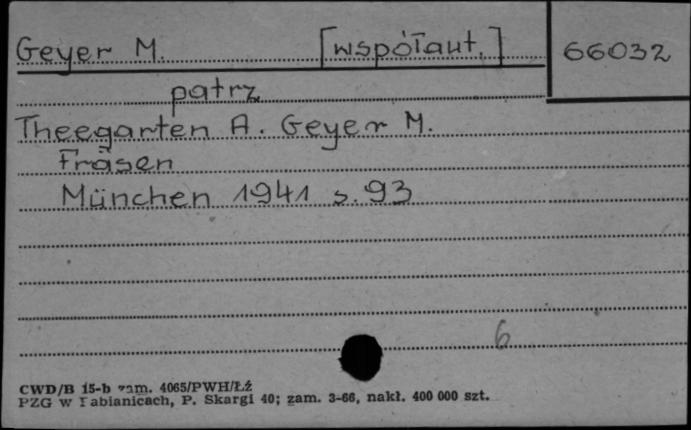 Geyer M. [współaut.] 66032
patrz
Theegarten A. Geyer M.
Fräsen
München 1941 s. 93
6
CWD/B 15-b zam. 4065/PWH/Łż
PZG w Pabianicach, P. Skargi 40; zam. 3-66, nakł. 400 000 szt.